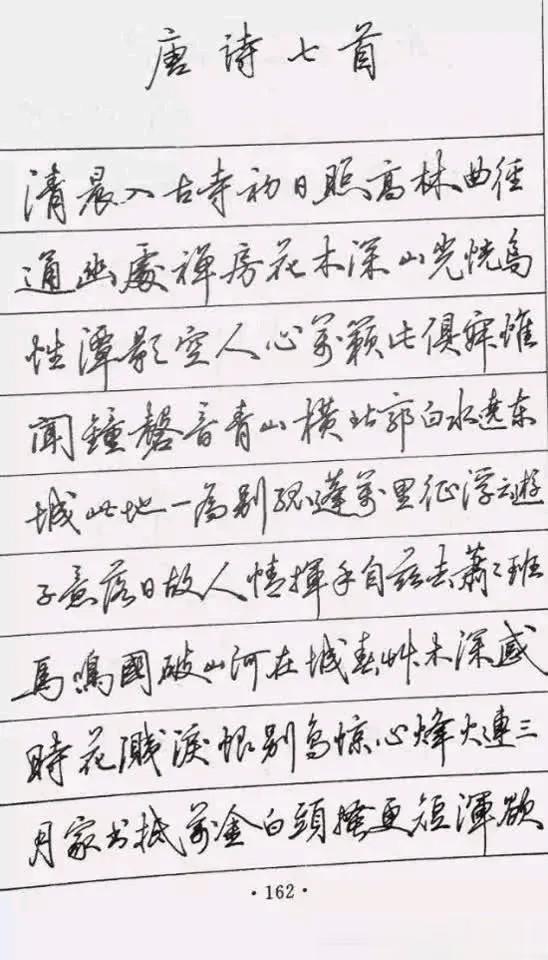 唐诗七首
清晨入古寺初日照高林曲径
通幽處禅房花木深山光悦鸟
性潭影空人心萬籁此俱寂惟
闻鐘磬音青山横北郭白水遶东
城此地一为别孤蓬萬里征浮云游
子意落日故人情揮手自兹去萧々班
马鸣國破山河在城春草木深感
時花溅淚恨别鸟惊心烽火連三
月家书抵萬金白頭搔更短渾欲
·162·